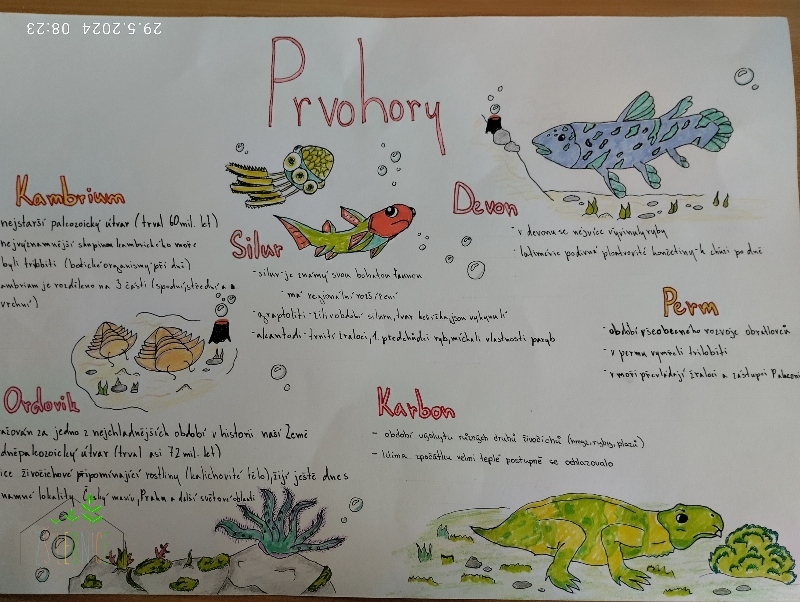 29.5.2024 08:23
Prvohory
Kambrium
nejstarší paleozoický útvar (trval 60mil. let)
nejvýznamnější skupinou kambrického moře
byli trilobiti (bentické organismy při dně)
ambrium je rozděleno na 3 části (spodní, střední a
vrchní)
Silur
- silur je známý svou bohatou faunou
- má regionální rozšíření
- graptoliti - žili v období siluru, tvar
- akantodi - trnití žraloci, 1. předchůdci ryb, míchali vlastnosti paryb
Devon
- v devonu se nejvíce vyvinuly ryby
- latimérie podivné ploutvovité končetiny - k chůzi po dně
Perm
- období všeobecného rozvoje obratlovců
- v permu vymřeli trilobiti
- v moři převládají žraloci a zástupci
Ordovik
ažován za jedno z nejchladnějších období v historii naší Země
paleozoický útvar (trval asi 72 mil. let)
ice živočichové připomínající rostliny (kalichovité tělo), žijí ještě dnes
namné lokality Praha a další světové oblasti
Karbon
- období výskytu různých druhů živočichů (hmyz, ryby, plazi)
- klima zpočátku velmi teplé postupně se ochlazovalo